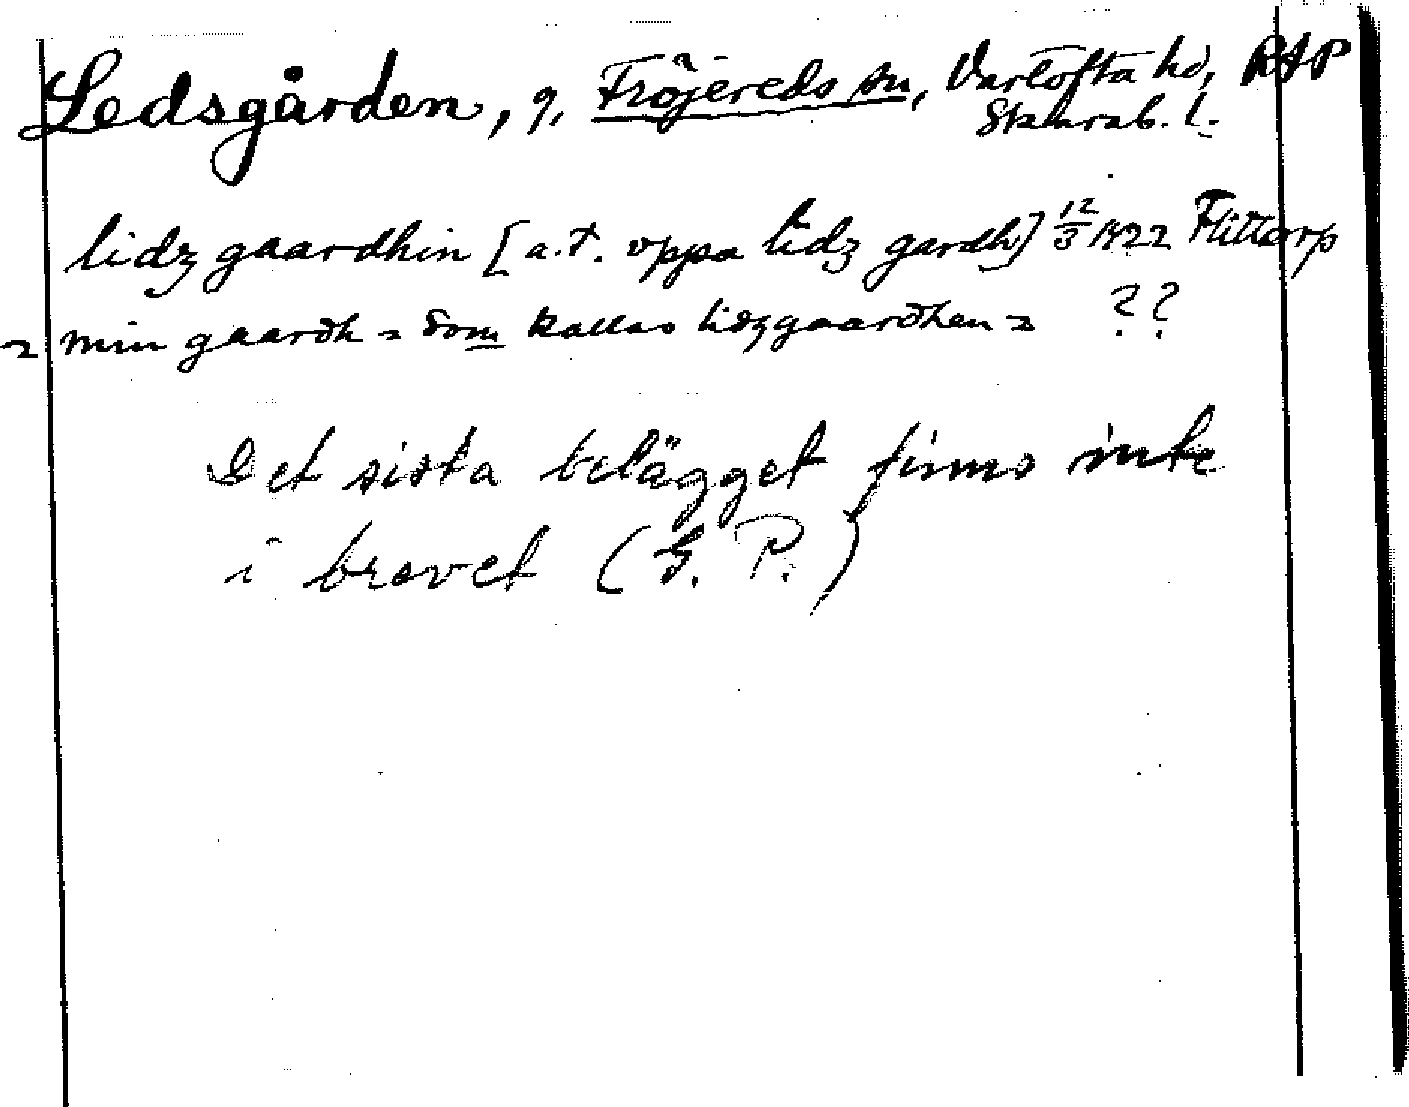 Ledsgården, g, Fröjereds sn, Vartofta hd, RAP
Skarab. l.
lidz gaardhin [a.t. vppa lidz gardh] 12/3 1422 Flittorp
~ min gaardh ~ som kallas lidzgaardhen ~ ??
Det sista belägget finns inte
i brevet (G. P.)